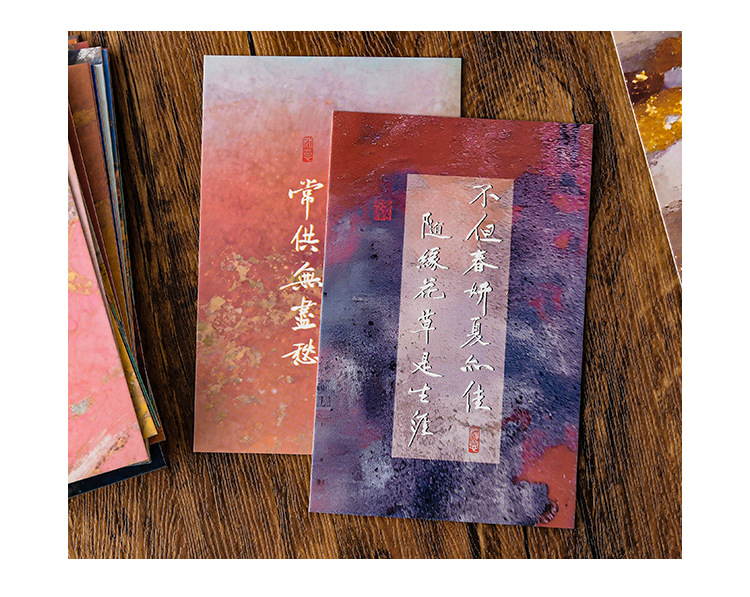 常供無盡愁
不但春妍夏亦佳
随緣花草是生涯